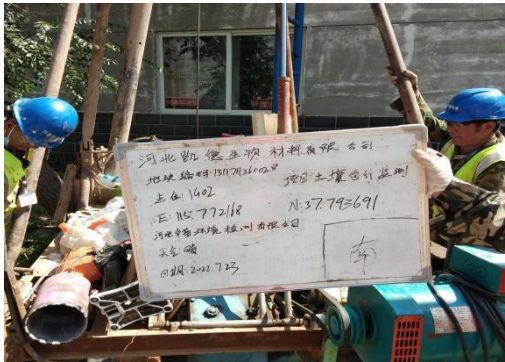 河北凯德生物材料有限公司
地块编码:1311712600
点位:1402 项目:土壤自行监测
E:115.772168 N:37.793691
河北 环境检测有限公司
天气:晴
日期:2022.7.23
南